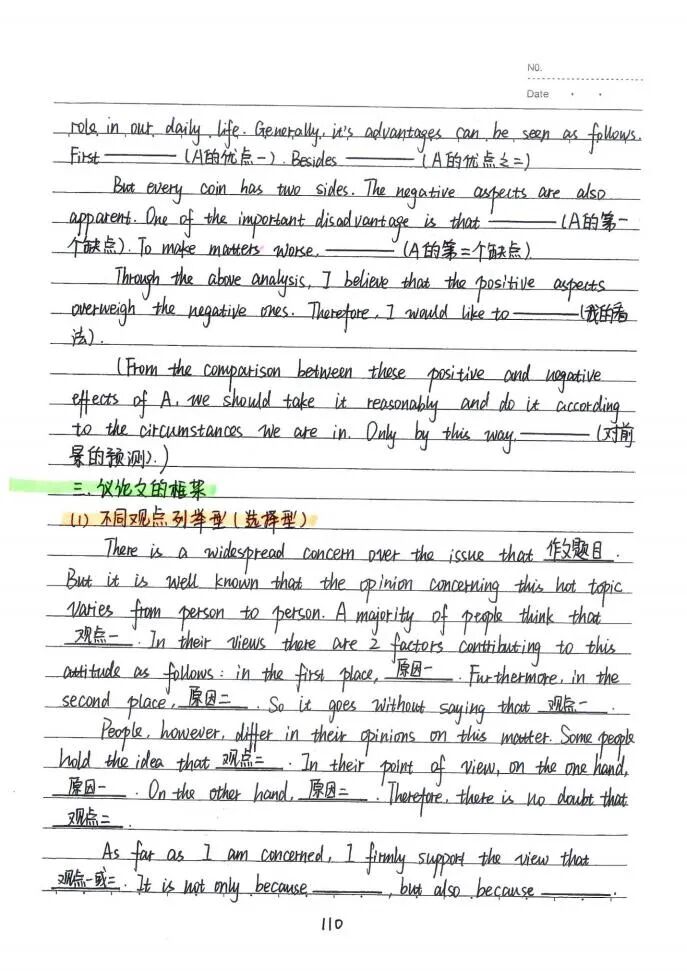 NO.
Date
role in our daily life. Generally, it's advantages can be seen as follows.
First ——— (A的优点一). Besides ——— (A的优点之二)
But every coin has two sides. The negative aspects are also
apparent. One of the important disadvantage is that ——— (A的第一
个缺点). To make matters worse, ——— (A的第二个缺点).
Through the above analysis, I believe that the positive aspects
overweigh the negative ones. Therefore, I would like to ——— (我的看
法).
(From the comparison between these positive and negative
effects of A, we should take it reasonably and do it according
to the circumstances we are in. Only by this way, ——— (对前
景的预测).)
三、议论文的框架
(1) 不同观点列举型(选择型)
There is a widespread concern over the issue that 作文题目.
But it is well known that the opinion concerning this hot topic
varies from person to person. A majority of people think that
观点一. In their views there are 2 factors contributing to this
attitude as follows: in the first place, 原因一. Furthermore, in the
second place, 原因二. So it goes without saying that 观点一.
People, however, differ in their opinions on this matter. Some people
hold the idea that 观点二. In their point of view, on the one hand,
原因一. On the other hand, 原因二. Therefore, there is no doubt that
观点二.
As far as I am concerned, I firmly support the view that
观点一或二. It is not only because ______, but also because ______.
110